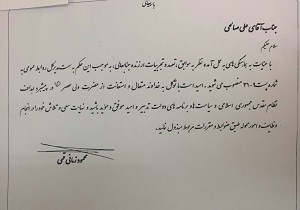 باسمه تعالی
جناب آقای علی صالحی
سلام علیکم
با عنایت به شایستگی‌های به عمل آمده نظر به سوابق، تعهد و تجربیات ارزنده جنابعالی، به موجب این حکم به سمت مدیرکل روابط عمومی به
شماره پست منصوب می شوید. امید است با توکل به خداوند متعال و استعانت از حضرت ولی عصر در پیشبرد اهداف
نظام مقدس جمهوری اسلامی و سیاست‌ها و برنامه های دولت تدبیر و امید موفق و مؤید باشید و نهایت سعی و تلاش خود را در انجام
وظایف و امور محوله طبق ضوابط و مقررات مربوط مبذول نمائید.
محمود زمانی قمی